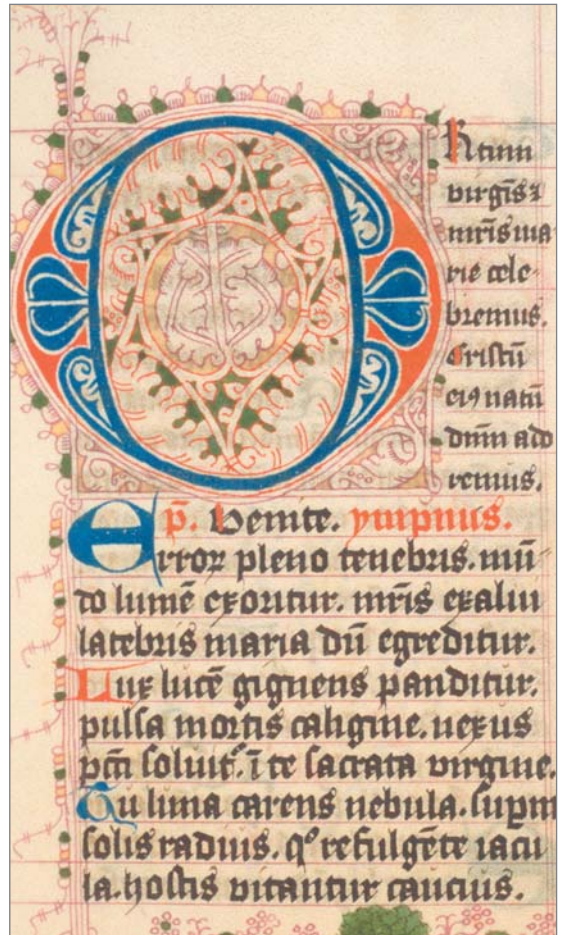 ORtum
virgīs ⁊
mr̄is ma
rie cele
bremus.
Cristū
eiꝰ natū
dn̄m ado
remus.
p̄. Venite. ympnus.
Error pleno tenebris. mū
do lumē exoritur. mr̄is exalui
latebris maria dū egreditur.
Lux lucē gignens panditur.
pulsa mortis caligine. nexus
pct̄i soluit᷑. ī te sacrata virgine.
Tu luna carens nebula. supm
solis radius. qͦ refulgēte iacu
la. hostis vitantur caucius.